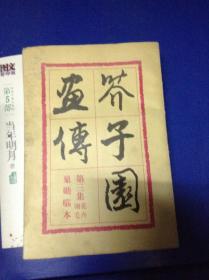 芥子園
畫傳
第三集 花卉翎毛
巢勳臨本
图文
第5部
当年明月